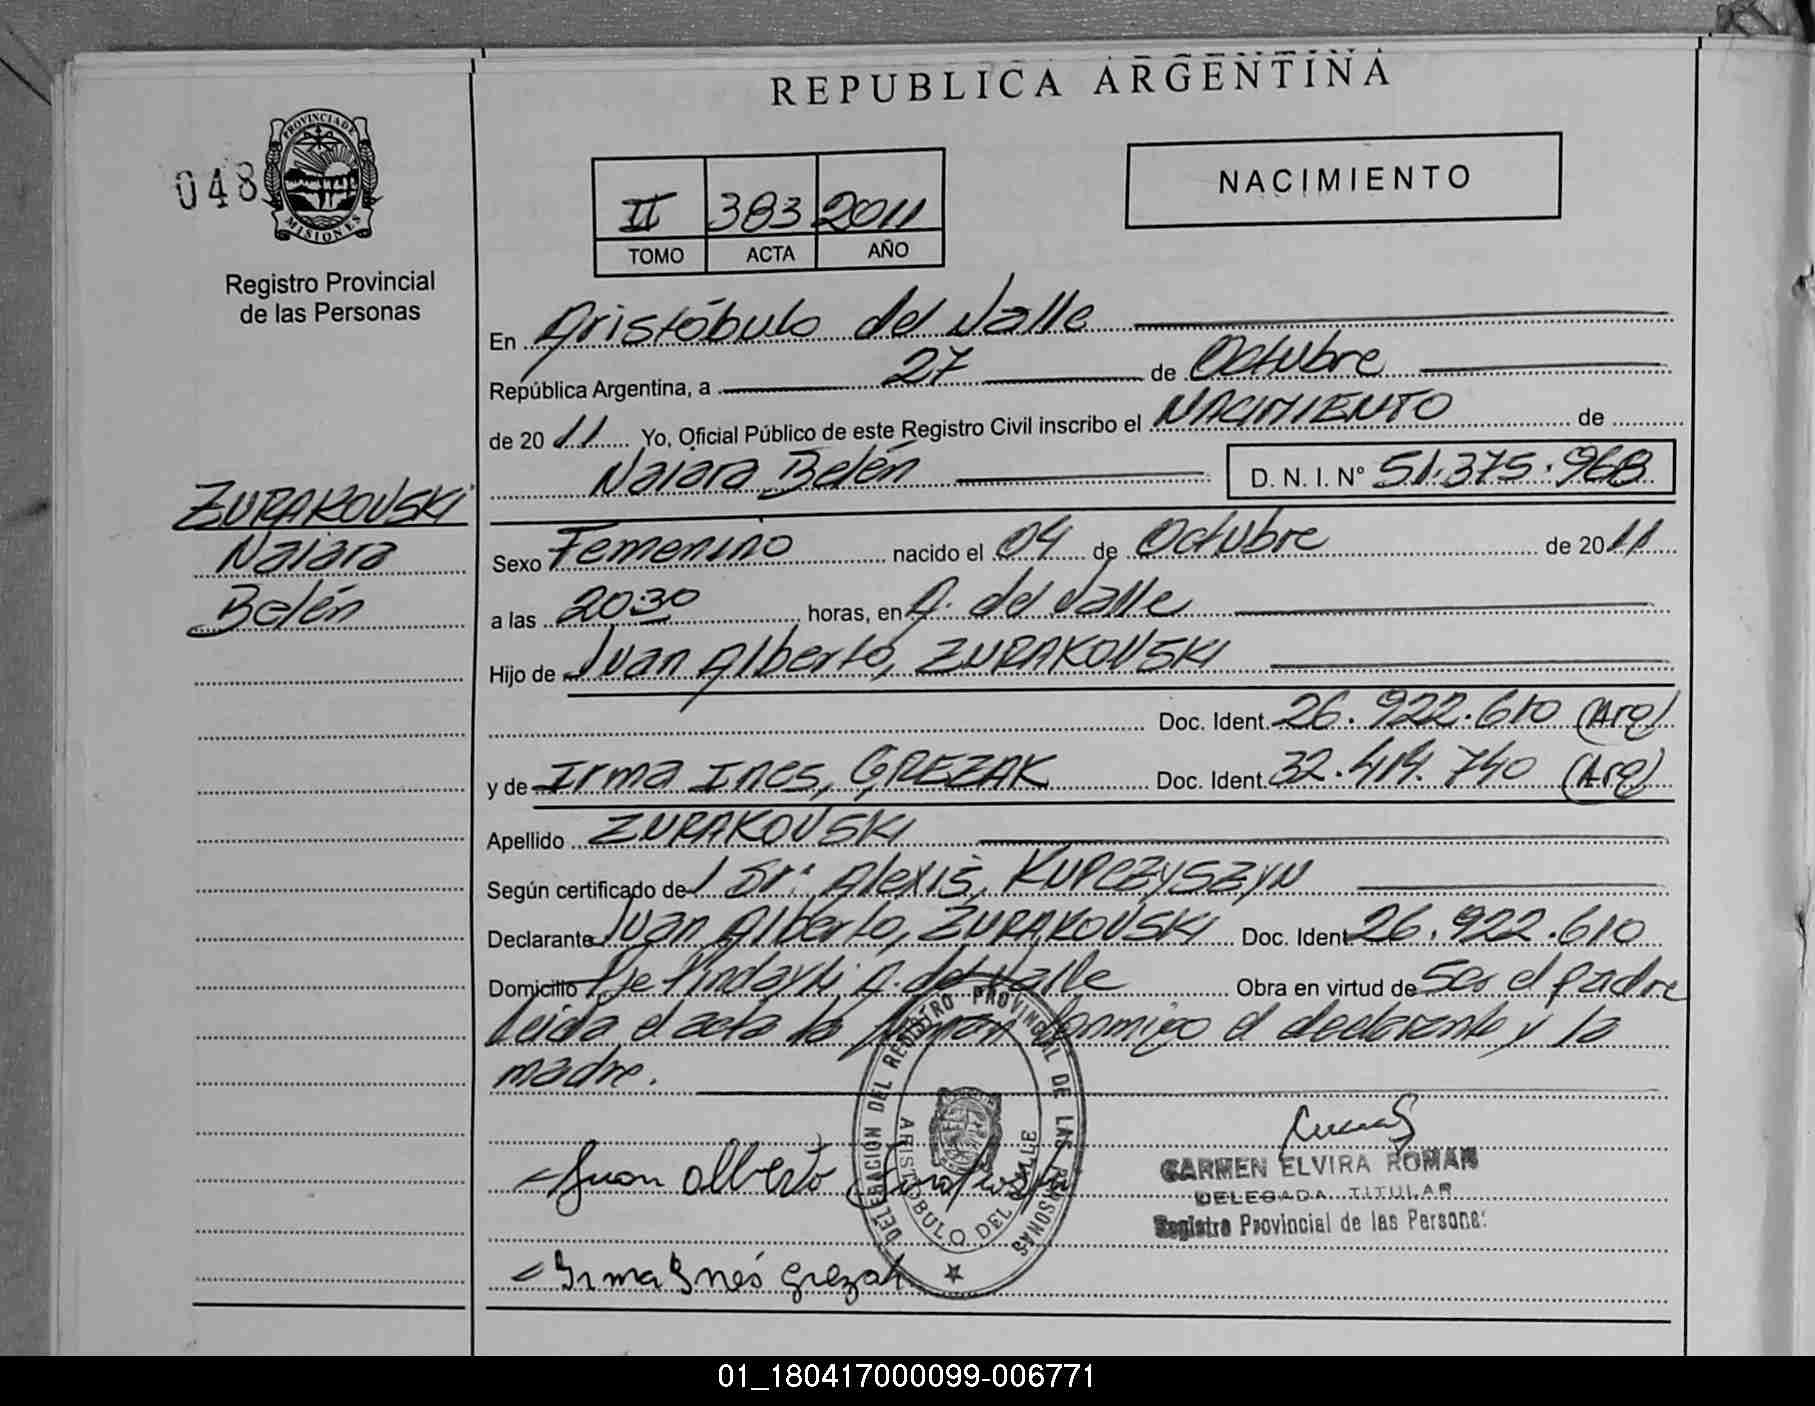 REPUBLICA ARGENTINA
048
PROVINCIA DE
MISIONES
Registro Provincial
de las Personas
II 383 2011
TOMO ACTA AÑO
NACIMIENTO
En Aristóbulo del Valle
República Argentina, a 27 de Octubre
de 20 11 Yo, Oficial Público de este Registro Civil inscribo el NACIMIENTO de
Naiara Belén D. N. I. Nº 51.375.968
ZURAKOVSKI
Naiara
Belén
Sexo Femenino nacido el 04 de Octubre de 20 11
a las 20:30 horas, en A. del Valle
Hijo de Juan Alberto, ZURAKOVSKI
Doc. Ident. 26.922.610 (Arg)
y de Irma Ines, GREZAK Doc. Ident. 32.414.740 (Arg)
Apellido ZURAKOVSKI
Según certificado de l Dr. Alexis, KUPCZYSZYN
Declarante Juan Alberto, ZURAKOVSKI Doc. Ident 26.922.610
Domicilio A. del Valle Obra en virtud de Ser el padre
Leída el acta la firman conmigo el declarante y la
madre.
DELEGACIÓN DEL REGISTRO PROVINCIAL DE LAS PERSONAS
ARISTÓBULO DEL VALLE
Juan Alberto
CARMEN ELVIRA ROMAN
DELEGADA TITULAR
Registro Provincial de las Personas
Irma Inés Grezak
01_180417000099-006771